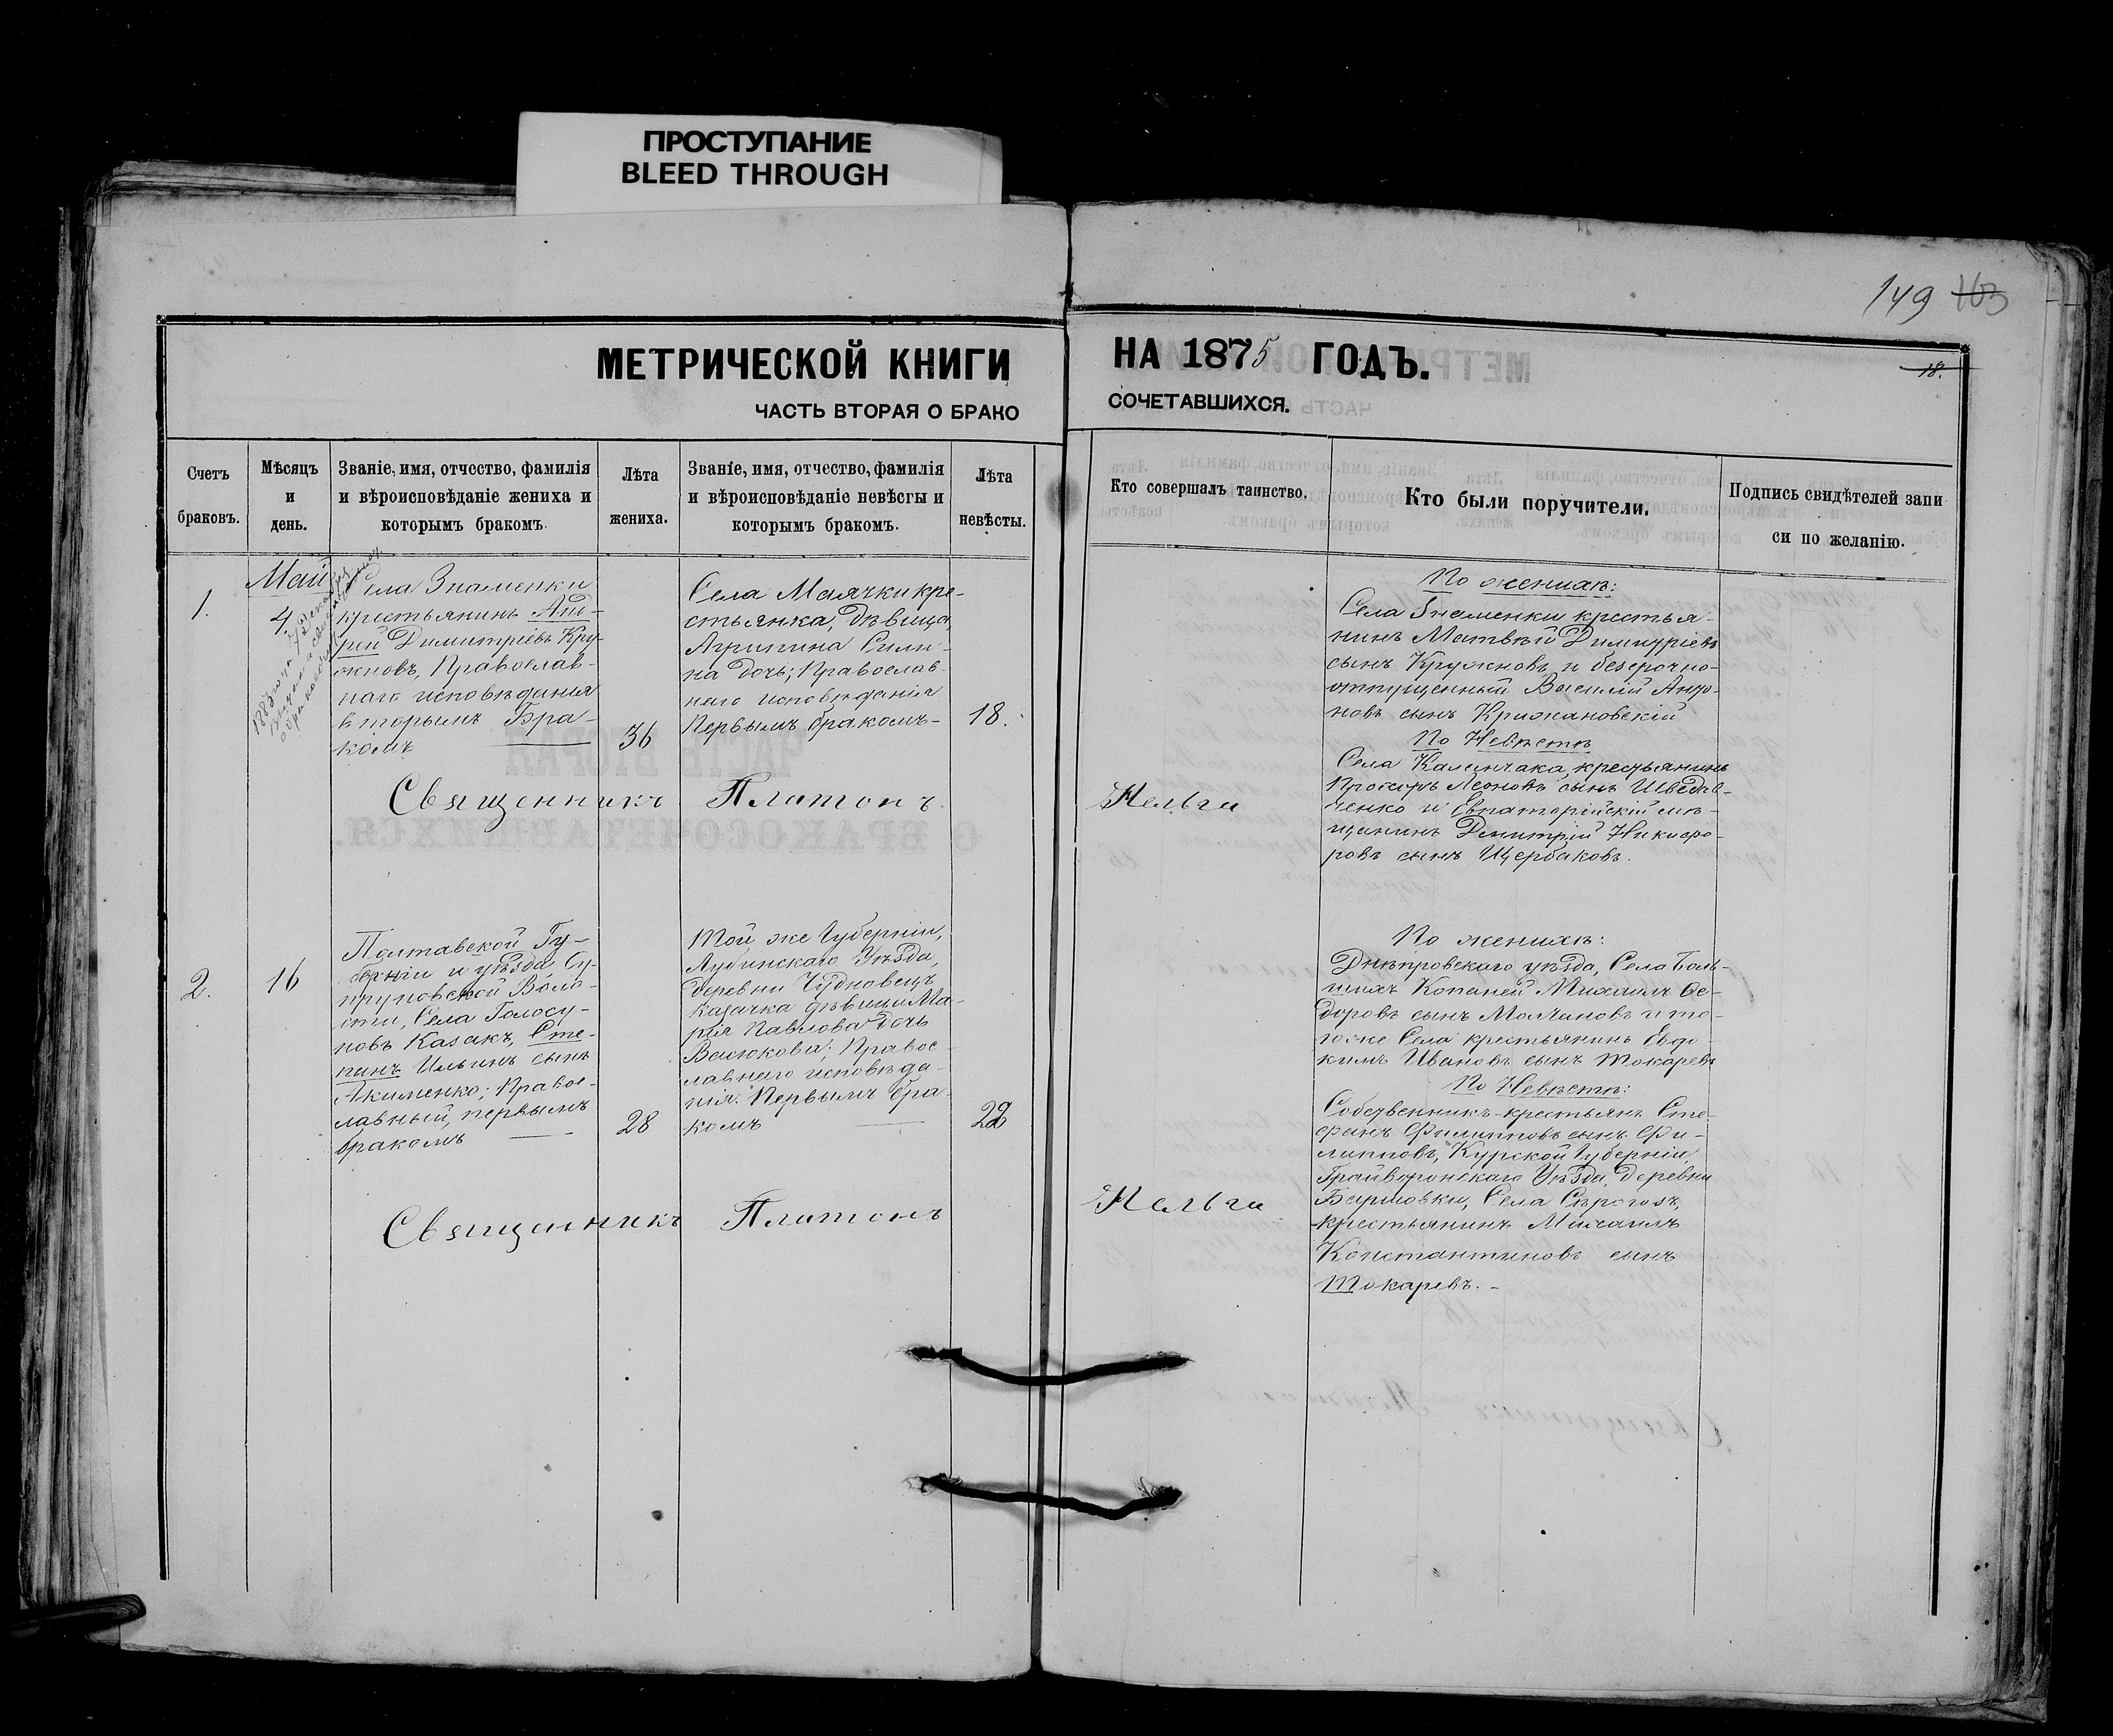 ПРОСТУПАНИЕ
BLEED THROUGH
149 163
МЕТРИЧЕСКОЙ КНИГИ НА 1875 ГОДЪ.
18.
ЧАСТЬ ВТОРАЯ О БРАКО СОЧЕТАВШИХСЯ.
Счетъ
браковъ.
Мѣсяцъ
и
день.
Званіе, имя, отчество, фамилія
и вѣроисповѣданіе жениха и
которымъ бракомъ.
Лѣта
жениха.
Званіе, имя, отчество, фамилія
и вѣроисповѣданіе невѣсты и
которымъ бракомъ.
Лѣта
невѣсты.
Кто совершалъ таинство.
Кто были поручители.
Подпись свидѣтелей запи
си по желанію.
1.
Май
4.
Села Знаменки
крестьянинъ Анд-
рей Димитріевъ Кру-
жновъ, Православ-
наго исповѣданія
вторымъ Бра-
комъ
36
Села Маячки кре-
стьянка, дѣвица,
Агрипина Сили-
на дочь; Православ-
наго исповѣданія
Первымъ бракомъ-
18.
По женихѣ:
Села Знаменки крестья-
нинъ Матвѣй Димитріевъ
сынъ Кружновъ и безсрочно-
отпущенный Василий Анто-
новъ сынъ Крижановскій
По Невѣстѣ
Села Каланчака, крестьянинъ
Прокоръ Леоновъ сынъ Шведов-
ченко и Евпаторійскій мѣ-
щанинъ Дмитрій Никифо-
ровъ сынъ Щербаковъ.
Священникъ Платонъ Нельга
2.
16
Полтавской Гу-
берніи и уѣзда Су-
пруновской Воло-
сти, Села Голосу-
новъ Казакъ, Сте-
панъ Ильинъ сынъ
Акименко; Правос-
лавный, первымъ
бракомъ
28
Той же Губерніи,
Лубинскаго Уѣзда,
деревни Чудновецъ
казачка дѣвица Ма-
рія Павлова дочь
Васюкова; Правос-
лавнаго исповѣда-
нія. Первымъ бра-
комъ
22
По женихѣ:
Днѣпровскаго уѣзда, Села Боль-
шихъ Копаней Михаилъ Ѳе-
доровъ сынъ Молчановъ и то-
гоже Села крестьянинъ Евдо-
кимъ Ивановъ сынъ Токаревъ
По Невѣстѣ:
Собственникъ-крестьянъ Сте-
фанъ Филипповъ сынъ Фи-
липповъ, Курской Губерніи,
Грайворонскаго Уѣзда, деревни
Села Сѣрогозъ,
крестьянинъ Михаилъ
Константиновъ сынъ
Токаревъ.-
Священникъ Платонъ Нельга